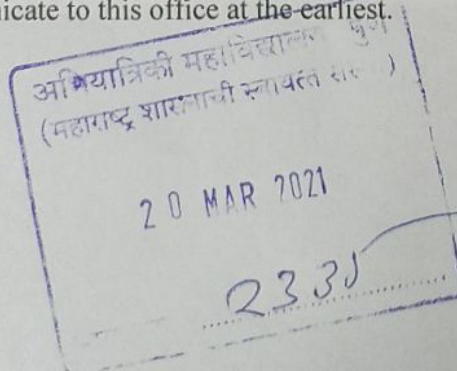 nicate to this office at the earliest.
अभियांत्रिकी महाविद्यालय पुणे
(महाराष्ट्र शासनाची स्वायत्त )
20 MAR 2021